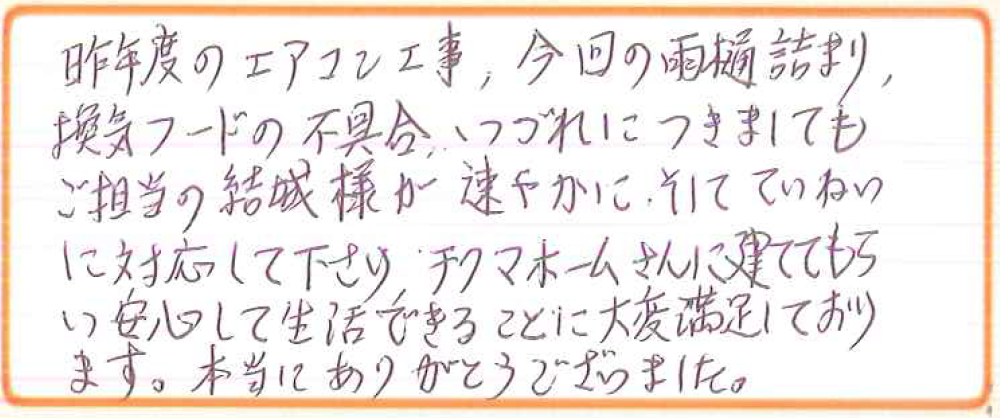 昨年度のエアコン工事, 今回の雨樋詰まり,
換気フードの不具合, いづれにつきましても
ご担当の結城様が速やかに、そしてていねい
に対応して下さり, チクマホームさんに建ててもら
い安心して生活できることに大変満足しており
ます。本当にありがとうございました。